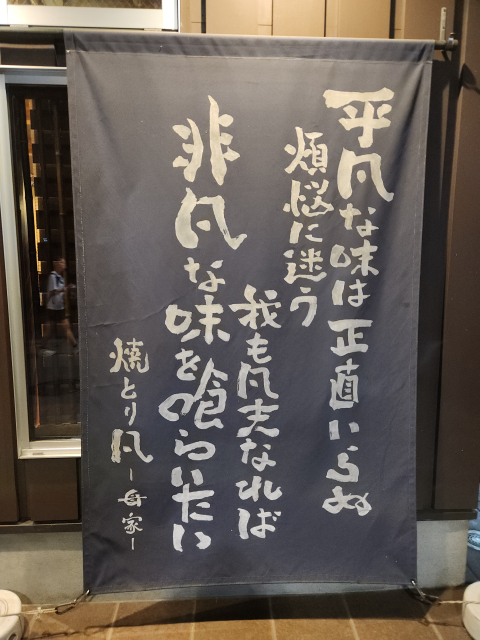 平凡な味は正直いらぬ
煩悩に迷う
我も凡夫なれば
非凡な味を喰らいたい
焼とり凡
-母家-